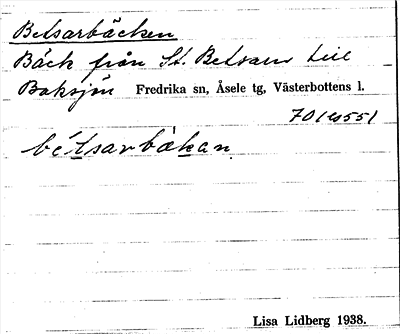 Betsarbäcken
Bäck från St. Betsarn till
Boksjön Fredrika sn, Åsele tg, Västerbottens l.
7014551
bétsarbäkan
Lisa Lidberg 1938.